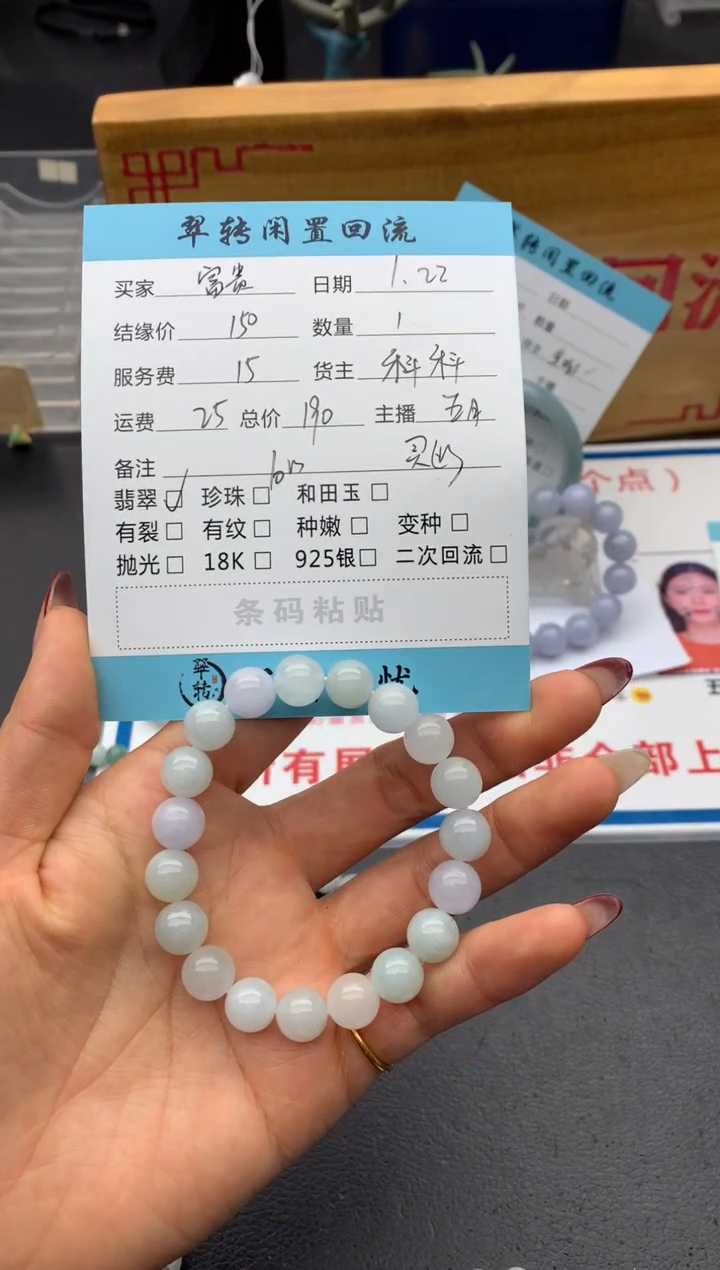 翠转闲置回流
买家 富贵 日期 1.22
结缘价 150 数量 1
服务费 15 货主 科科
运费 25 总价 190 主播 五月
备注
翡翠☑ 珍珠□ 和田玉□
有裂□ 有纹□ 种嫩□ 变种□
抛光□ 18K□ 925银□ 二次回流□
条码粘贴
翠转
忧
转闲置回流
日期
数量
个点）
所有展
全部上